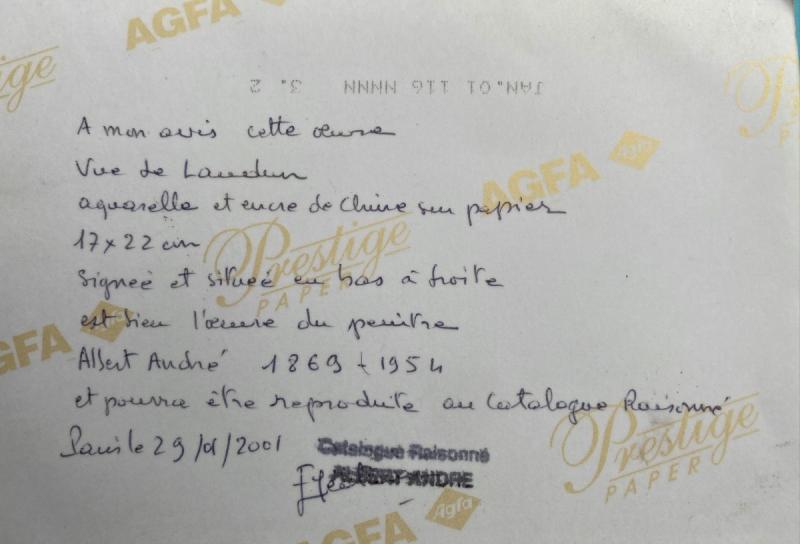 AGFA
JAN.01 116 NNNN 3. 2
A mon avis cette œuvre
Vue de Laudun
aquarelle et encre de Chine sur papier
17 x 22 cm
Signée et située en bas à droite
est bien l'œuvre du peintre
Albert André 1869 - 1954
et pourra être reproduite au Catalogue Raisonné
Paris le 29/01/2001
Catalogue Raisonné
ALBERT ANDRE
AGFA Agfa
Prestige
PAPER
AGFA
Prestige
PAPER
AGFA Agfa